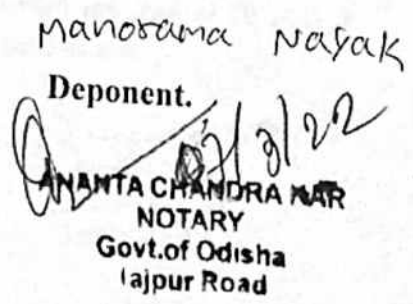 Manorama Nayak
Deponent.
07/3/22
ANANTA CHANDRA KAR
NOTARY
Govt.of Odisha
Jajpur Road